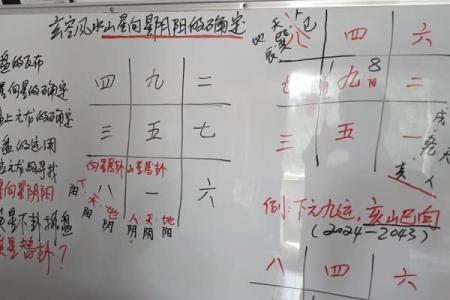 玄空风水山星向星阴阳的确定
盘的飞布
星向星的确定
盘上元龙的确定
盘的运用
元龙的寻找
星向星阴阳
星下卦
星替卦？
四 九 二
三 五 七
向星居卦 山星居卦
八 一 六
阳 天 地
阴 阴
人 天 地
阴 阴 阳
天 巳
地 巽
辰
八 四 六
七 九 8 二
三 五 一
戌
乾 天
亥 人
例：下元九运，亥山巳向
（2024－2043）
八 四 六